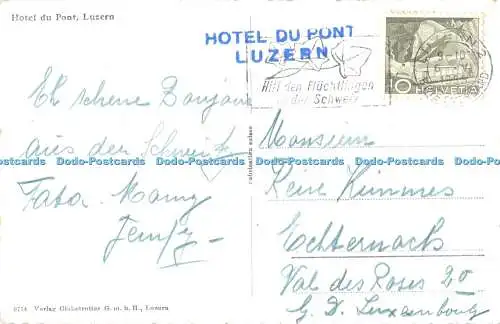 Hotel du Pont, Luzern
HOTEL DU PONT
LUZERN
Hilf den Flüchtlingen
in der Schweiz
10
HELVETIA
Eh schene Bonjour
aus der Schweiz
Tata Mamy
Monsieur
René Kimmes
Echternach
Val des Roses 20
G. D. Luxembourg
Fabrication suisse
Dodo-Postcards Dodo-Postcards Dodo-Postcards Dodo-Postcards Dodo-Postcards Dodo-Postcards
9774 Verlag Globetrotter G. m. b. H., Luzern